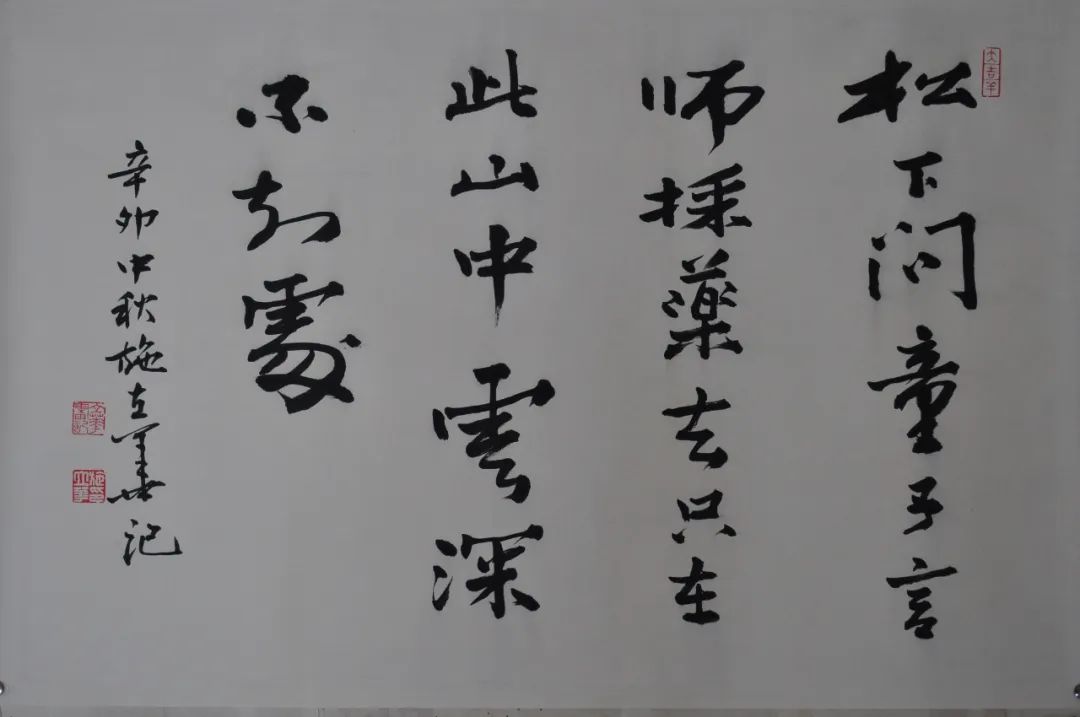 大吉羊
松下问童子言
师採藥去只在
此山中雲深
不知處
辛卯中秋施立華记